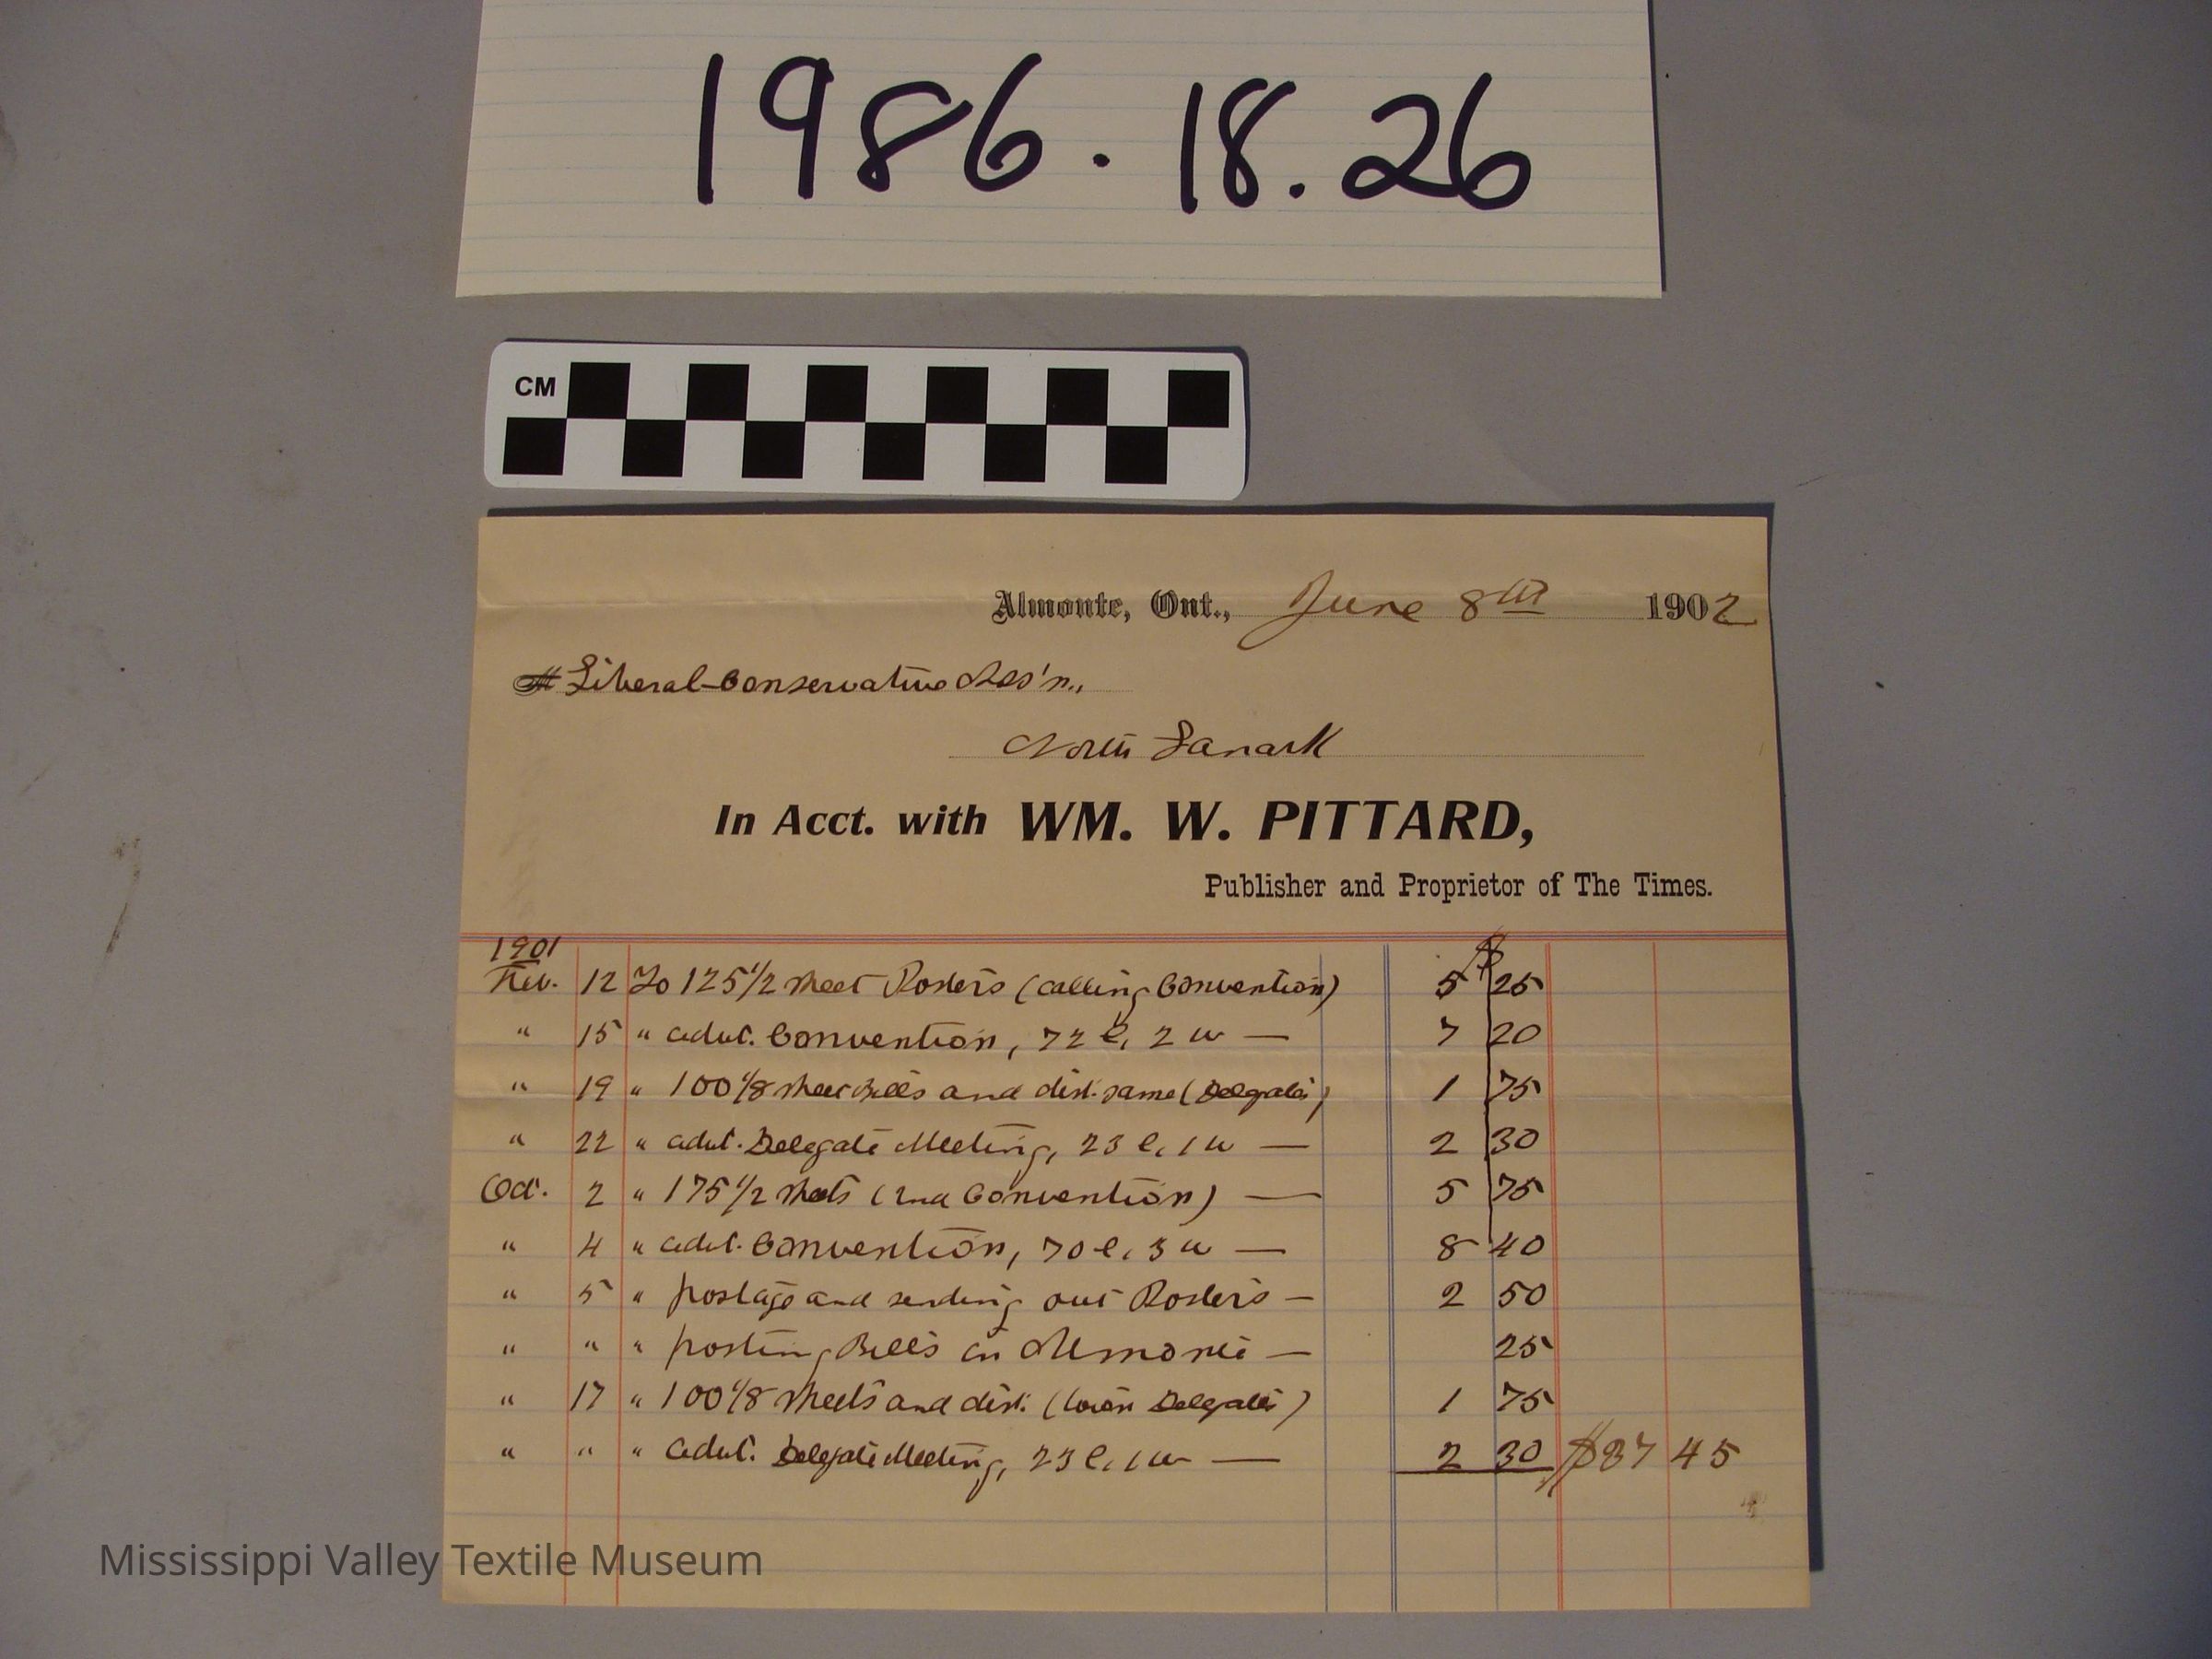 1986.18.26
CM
Almonte, Ont., June 8th 1902
Liberal-Conservative Ass'n.,
North Lanark
In Acct. with WM. W. PITTARD,
Publisher and Proprietor of The Times.
1901 $
Feb. 12 To 125 1/2 sheet Posters (calling Convention) 5 25
" 15 " advt. Convention, 72 l, 2 w — 7 20
" 19 " 100 1/8 sheet Bills and dist. same (Delgates) 1 75
" 22 " advt. Delegate Meeting, 23 l, 1 w — 2 30
Oct. 2 " 175 1/2 sheets (2nd Convention) — 5 75
" 4 " advt. Convention, 70 l, 3 w — 8 40
" 5 " postage and sending out Posters — 2 50
" " " posting Bills in Almonte — 25
" 17 " 100 1/8 sheets and dist. (town Delgates) 1 75
" " " advt. Delegate Meeting, 23 l, 1 w — 2 30 $37 45
Mississippi Valley Textile Museum